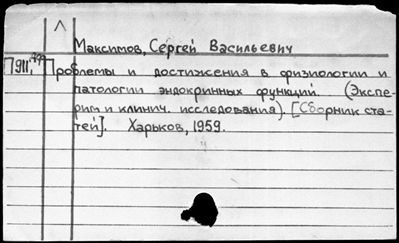 Максимов, Сергей Васильевич
Проблемы и достижения в физиологии и
патологии эндокринных функций. (Экспе-
рим и клинич. исследования). [Сборник ста-
тей]. Харьков, 1959.